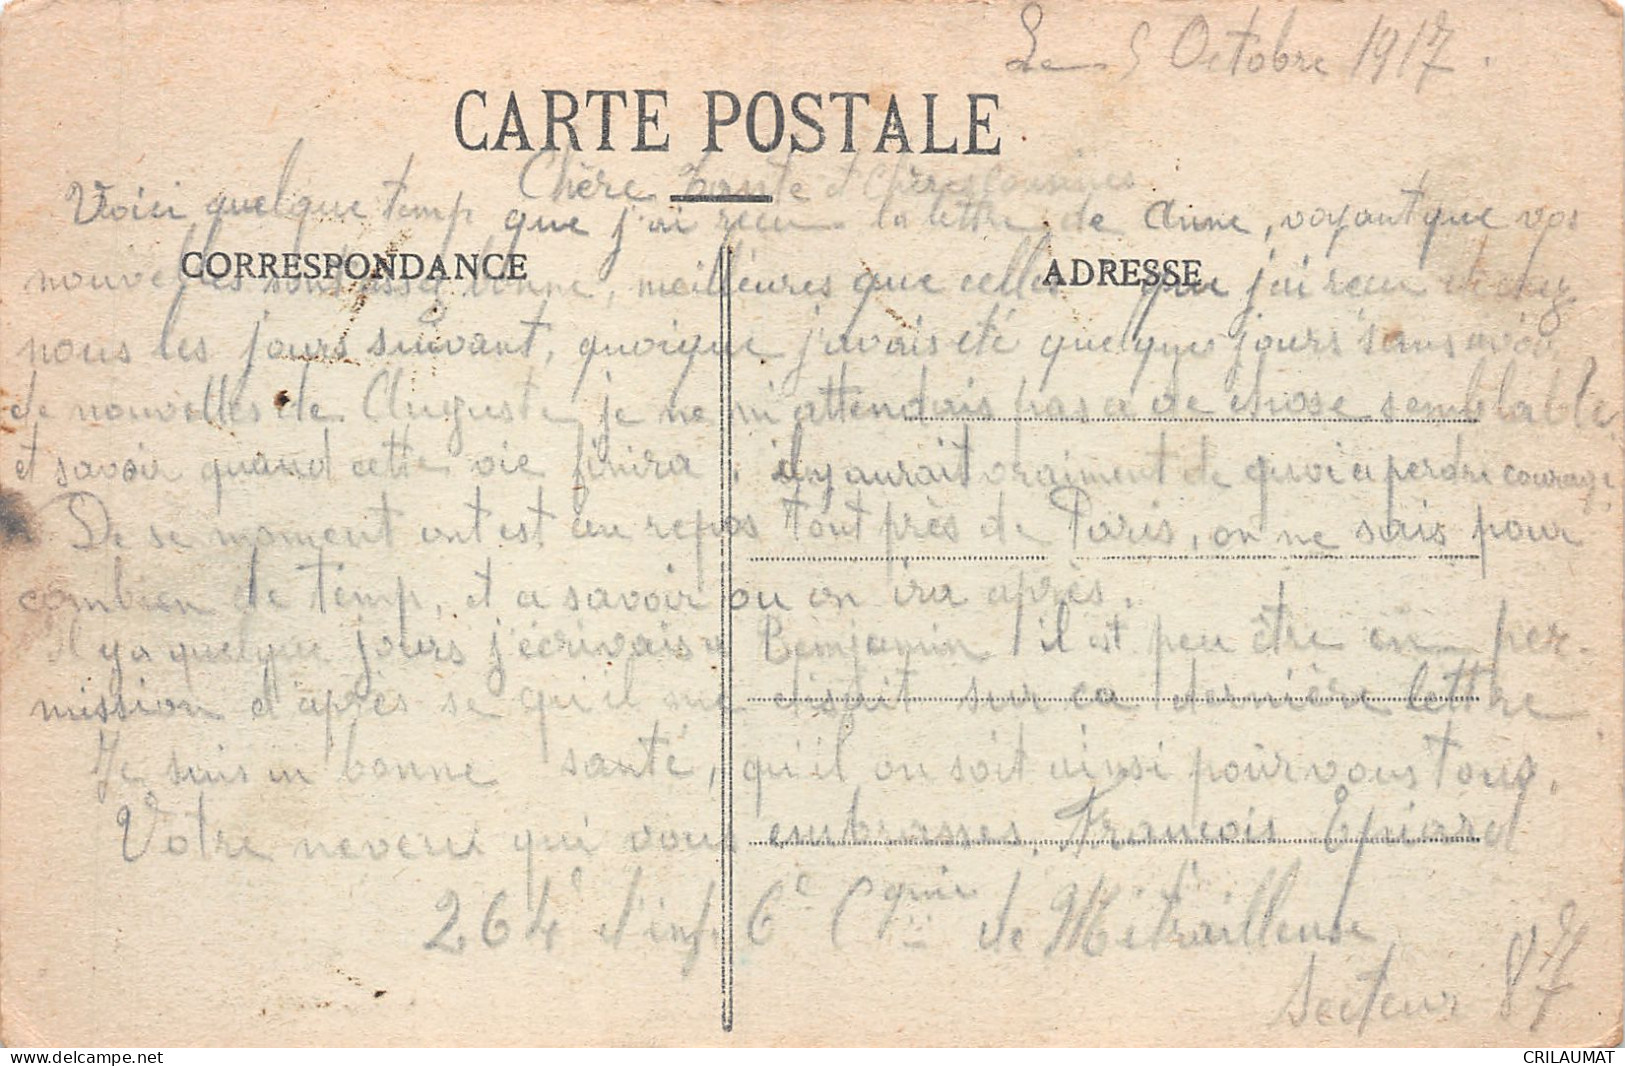 Le 5 Octobre 1917.
CARTE POSTALE
Chère Tante et Chères Cousines
Voici quelque temp que j'ai reçu la lettre de Anne, voyant que vos
CORRESPONDANCE
ADRESSE
nouvelles sont assez bonne, meilleures que celles que j'ai reçu de chez
nous les jours suivant, quoique j'avais été quelque jours sans avoir
de nouvelles de Auguste, je ne m'attendais pas a de chose semblable
et savoir quand cette vie finira, il y aurait vraiment de quoi a perdre courage.
De se moment ont est au repos tout près de Paris, on ne sais pour
combien de temp, et a savoir ou on ira après.
Il y a quelque jours j'écrivais a Benjamin il est peu être en per-
mission d'après se qu'il me disait sur ca dernière lettre
Je suis en bonne santé, qu'il en soit ainsi pour vous tous.
Votre neveu qui vous embrasses. François Epiard
264e d'inf 6e Cie de Mitrailleuse
Secteur 87
CRILAUMAT